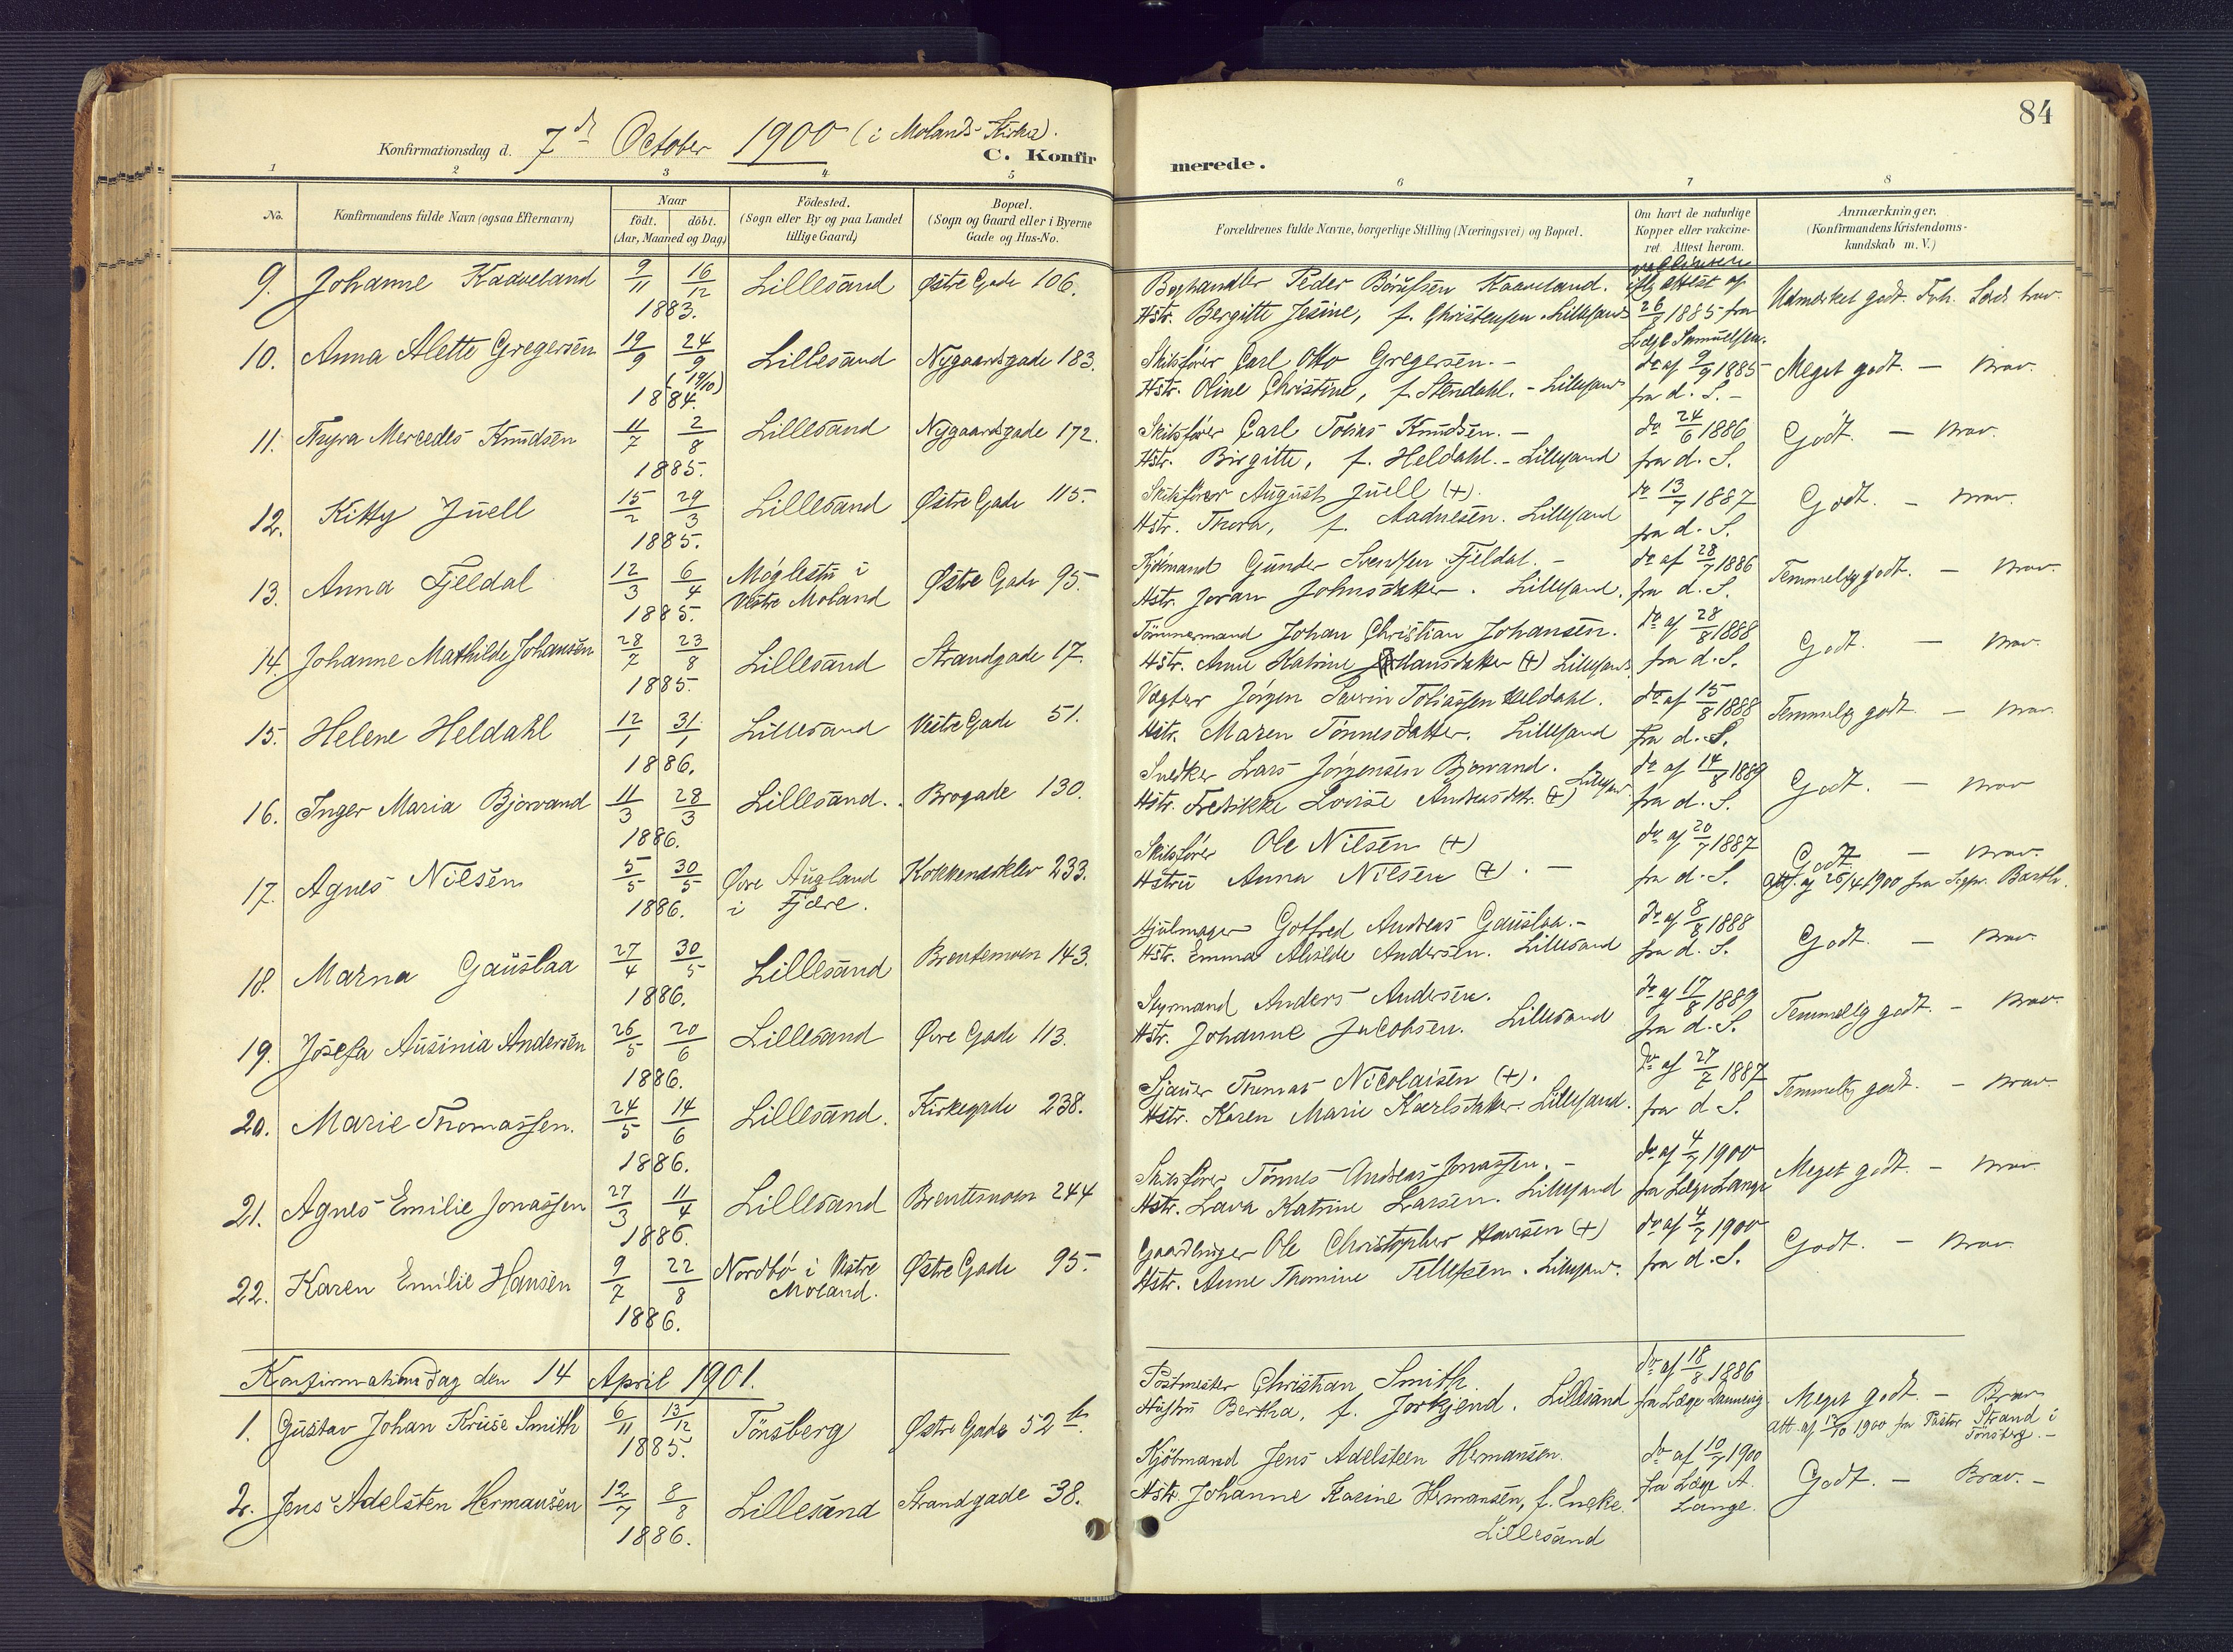 84
Konfirmationsdag d. 7de October 1900 (i Molands Kirke).
C. Konfirmerede.
1 2 3 4 5 6 7 8
No.
Konfirmandens fulde Navn (ogsaa Efternavn)
Naar
födt. döbt.
(Aar, Maaned og Dag)
Födested.
(Sogn eller By og paa Landet
tillige Gaard)
Bopæl.
(Sogn og Gaard eller i Byerne
Gade og Hus-No.
Forældrenes fulde Navne, borgerlige Stilling (Næringsvei) og Bopæl.
Om havt de naturlige
Kopper eller vakcine-
ret. Attest herom.
Anmærkninger.
(Konfirmandens Kristendoms-
kundskab m. V.)
9. Johanne Kaaveland 9/11 16/12 1883. Lillesand Østre Gade 106.
Boghandler Peder Börufsen Kaaveland.
Hstr. Bergitte Jesine, f. Christensen. Lillesand
iflg Attest af
26/ 1885 fra
Læge Samuelsen.
Udmærket godt.
10. Anna Alette Gregersen 19/9 24/9 (19/10) 1884. Lillesand Nygaardsgade 183.
Skibsfører Carl Otto Gregersen. -
Hstr. Oline Christine, f. Stendahl. - Lillesand
do af 9/9 1885
fra d. S. -
Meget godt. - Brav.
11. Thyra Mercedes Knudsen 11/7 2/8 1885. Lillesand Nygaardsgade 172.
Skibsfører Carl Tobias Knudsen. -
Hstr. Birgitte, f. Heldahl. - Lillesand
do 24/6 1886
fra d. S.
Godt. - Brav.
12. Kitty Juell 15/2 29/3 1885. Lillesand Østre Gade 115.
Skibsfører August Juell (+).
Hstr. Thora, f. Aadnesen. Lillesand
do 13/7 1887
fra d. S.
Godt. - Brav.
13. Anna Fjeldal 12/3 6/4 1885. Møglestu i
Vestre Moland Østre Gade 95.
Kjömand Gunder Svendsen Fjeldal. -
Hstr. Joran Johnsdatter. Lillesand.
do af 28/7 1886
fra d. S.
Temmelig godt. - Brav.
14. Johanne Mathilde Johansen 28/7 23/8 1885. Lillesand Strandgade 17.
Tömmermand Johan Christian Johansen.
Hstr. Anne Katrine Hansdatter (+) Lillesand
do af 28/8 1888
fra d. S.
Godt. - Brav.
15. Helene Heldahl 12/1 31/1 1886. Lillesand Vestre Gade 51.
Vægter Jørgen Severin Tobiassen Heldahl.
Hstr. Maren Tönnesdatter. Lillesand
do af 15/8 1888
fra d. S.
Temmelig godt - Brav.
16. Inger Maria Bjorvand 11/3 28/3 1886. Lillesand. Brogade 130.
Snedker Lars Jörgensen Bjorvand.
Hstr. Fredrikke Lovise Andreasdtr. (+) Lillesand.
do af 14/8 1889
fra d. S.
Godt. - Brav
17. Agnes Nilsen 5/5 30/5 1886. Øvre Augland
i Fjære. Kokkensklev 233.
Skibsfører Ole Nilsen (+)
Hstru Anna Nilsen (+). -
do af 20/7 1887
fra d. S.
Godt. - Brav.
Att. af 25/4 1900 fra Sogpr. Barth.
18. Marna Gauslaa 27/4 30/5 1886. Lillesand Brentemoen 143.
Hjulmager Gotfred Andreas Gauslaa. -
Hstr. Emma Alvilde Andersen. Lillesand
do af 8/8 1888
fra d. S.
Godt. - Brav.
19. Josefa Ausinia Andersen 26/5 20/6 1886. Lillesand Øvre Gade 113.
Styrmand Anders Andersen.
Hstr. Johanne Jacobsen. Lillesand
do af 17/8 1889
fra d. S.
Temmelig godt. - Brav.
20. Marie Thomassen. 24/5 14/6 1886. Lillesand. Kirkegade 238.
Sjauer Thomas Nicolaisen (+).
Hstr. Karen Marie Karlsdatter. Lillesand.
do af 27/7 1887
fra d S.
Temmelig godt. - Brav.
21. Agnes Emilie Jonassen 27/3 11/4 1886. Lillesand Brentemoen 244
Skibsfører Tönnes Andreas Jonassen. -
Hstr. Lava Katrine Larsen. Lillesand
do af 4/7 1900
fra Læge Lange
Meget godt. - Brav.
22. Karen Emilie Hansen 9/7 22/8 1886. Nordbö i Vestre
Moland. Østre Gade 95.
Gaardbruger Ole Christopher Hansen (+)
Hstr. Anne Thomine Tellefsen. Lillesand.
do af 4/7 1900
fra d. S.
Godt. - Brav.
Konfirmationsdag den 14 April 1901.
1. Gustav Johan Kruse Smith 6/11 13/12 1885. Tönsberg Østre Gade 52 b.
Postmester Christian Smith.
Hustru Bertha, f. Jorkjend. Lillesand
do af 18/8 1886
fra Læge
Meget godt. - Brav
Att. af 17/10 1900 fra Pastor Strand i
Tönsberg. -
2. Jens Adelsten Hermansen 12/7 8/8 1886. Lillesand Strandgade 38.
Kjöbmand Jens Adelsteen Hermansen.
Hstr. Johanne Karine Hermansen, f. Encke.
Lillesand
do af 10/7 1900
fra Læge A.
Lange.
Godt. - Brav. -